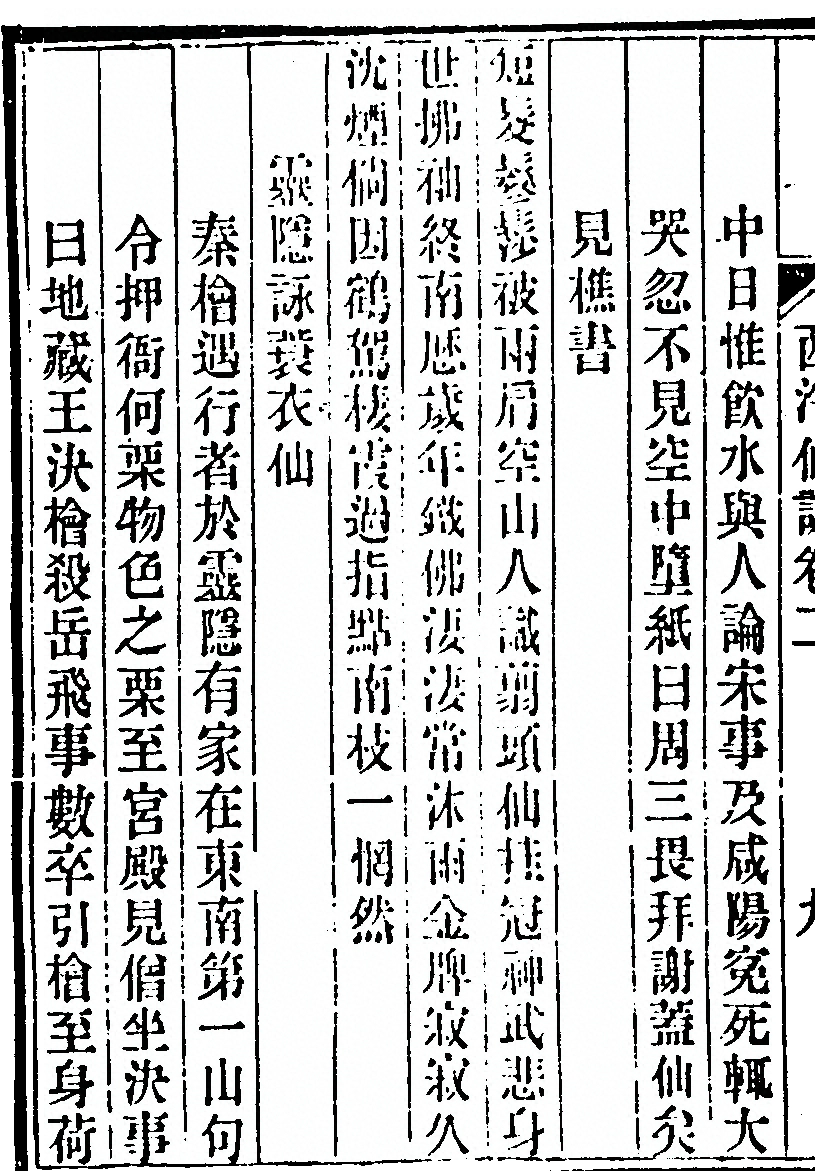 西泠仙詠卷二　九
中日惟飲水與人論宋事及咸陽寃死輒大
哭忽不見空中墮紙曰周三畏拜謝蓋仙矣
見樵書
短髮鬖髿被兩肩空山人識翦頭仙挂冠神武悲身
世拂袖終南厯歲年鐵佛淒淒常沐雨金牌寂寂久
沈煙倘因鶴駕棲霞過指點南枝一惘然
靈隱詠蓑衣仙
秦檜遇行者於靈隱有家在東南第一山句
令押衙何栗物色之栗至宮殿見僧坐決事
曰地藏王決檜殺岳飛事數卒引檜至身荷